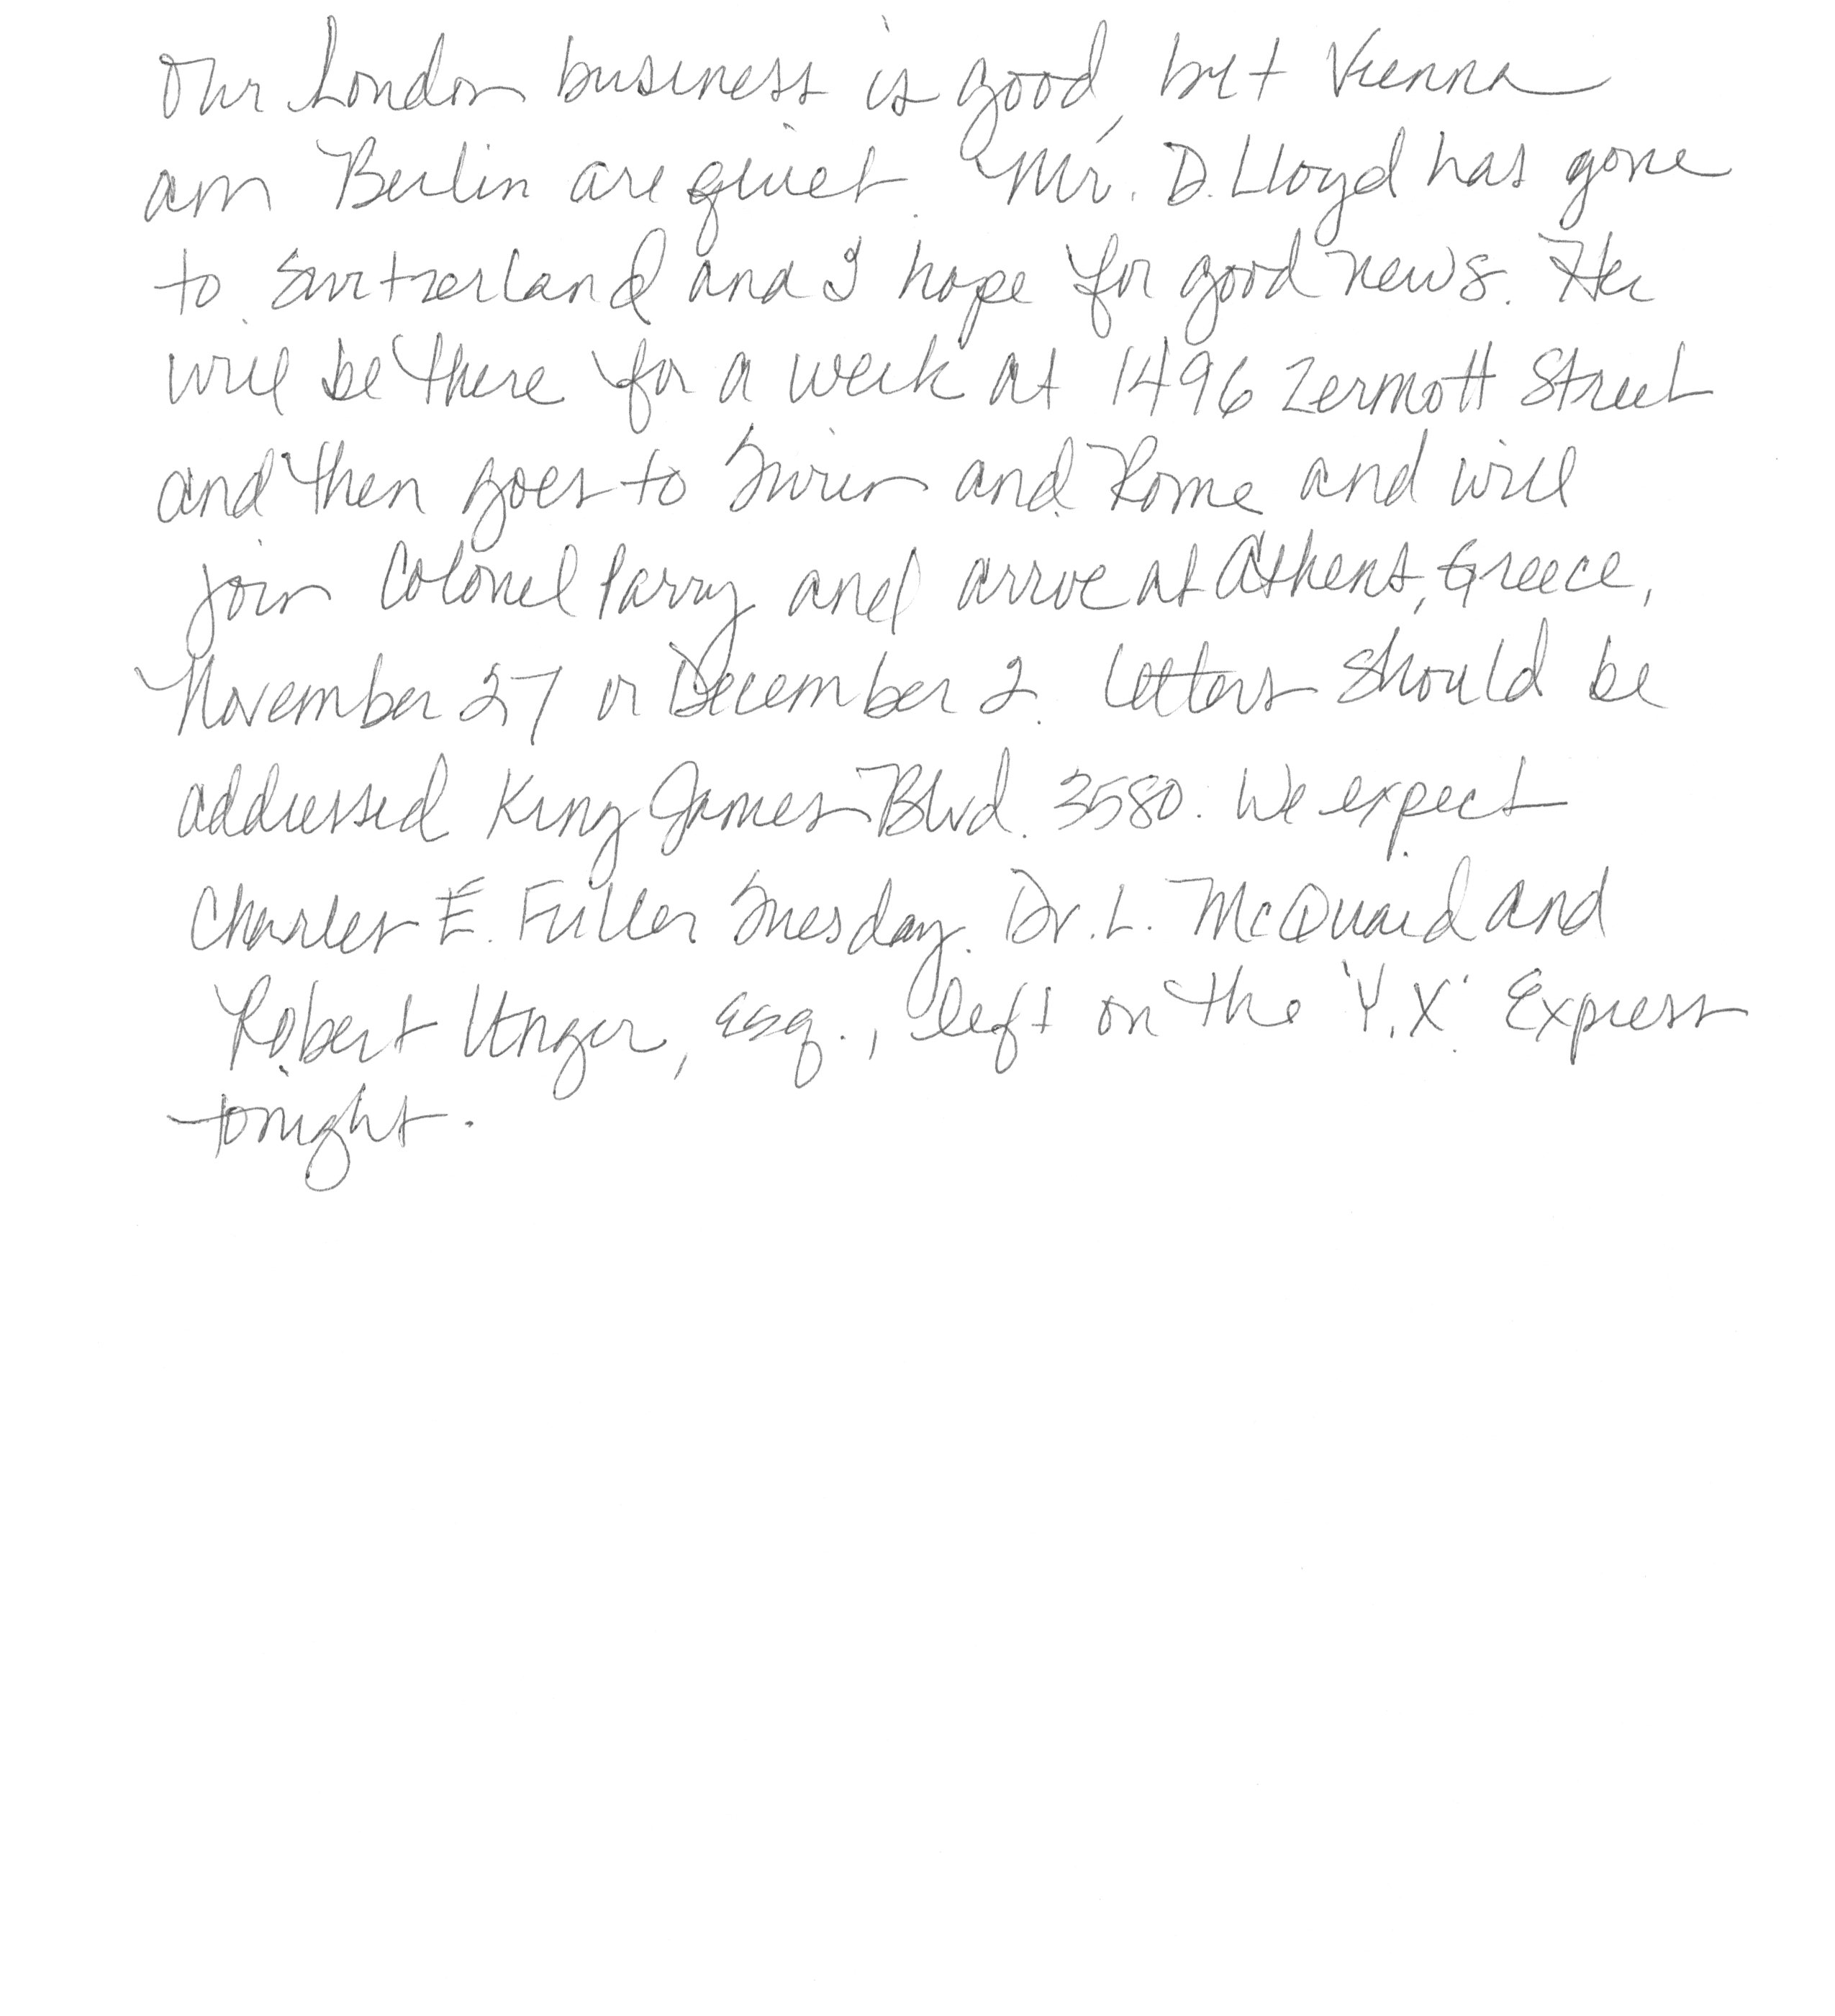 Our London business is good, but Vienna
am Berlin are quiet. Mr. D. Lloyd has gone
to Switzerland and I hope for good news. He
will be there for a week at 1496 Zermott Street
and then goes to Turin and Rome and will
join Colonel Parry and arrive at Athens, Greece,
November 27 or December 2. Letters should be
addressed King James Blvd. 3580. We expect
Charles E. Fuller Tuesday. Dr. L. McQuaid and
Robert Unger, Esq., left on the 'Y.X.' Express
tonight.